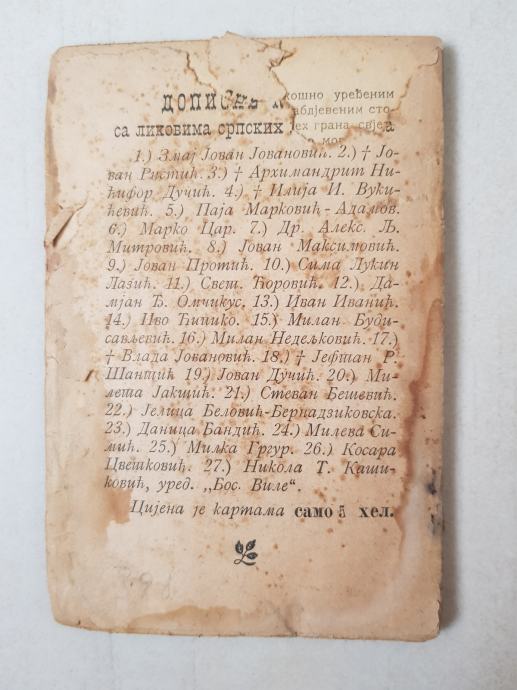 ДОПИСНЕ кошно уређеним
абдјевеним сто-
са ликовима српских јех грана свје а
мог
1.) Змај Јован Јовановић. 2.) † Јо-
ван Ристић. 3.) † Архимандрит Ни-
ћифор Дучић. 4.) † Илија И. Вуки-
ћевић. 5.) Паја Марковић-Адамов.
6.) Марко Цар. 7.) Др. Алекс. Љ.
Митровић. 8.) Јован Максимовић.
9.) Јован Протић. 10.) Сима Лукин
Лазић. 11.) Свет. Ћоровић. 12.) Да-
мјан Ђ. Омчикус. 13.) Иван Иванић.
14.) Иво Ћипико. 15.) Милан Буди-
сављевић. 16.) Милан Недељковић. 17.)
† Влада Јовановић. 18.) † Јефтан Р
Шантић 19.) Јован Дучић. 20.) Ми-
лета Јакшић. 21.) Стеван Бешевић.
22.) Јелица Беловић-Бернадзиковска.
23.) Даница Бандић. 24.) Милева Си-
мић. 25.) Милка Гргур. 26.) Косара
Цветковић. 27.) Никола Т. Каши-
ковић, уред. „Бос. Виле“.
Цијена је картама само 5 хел.